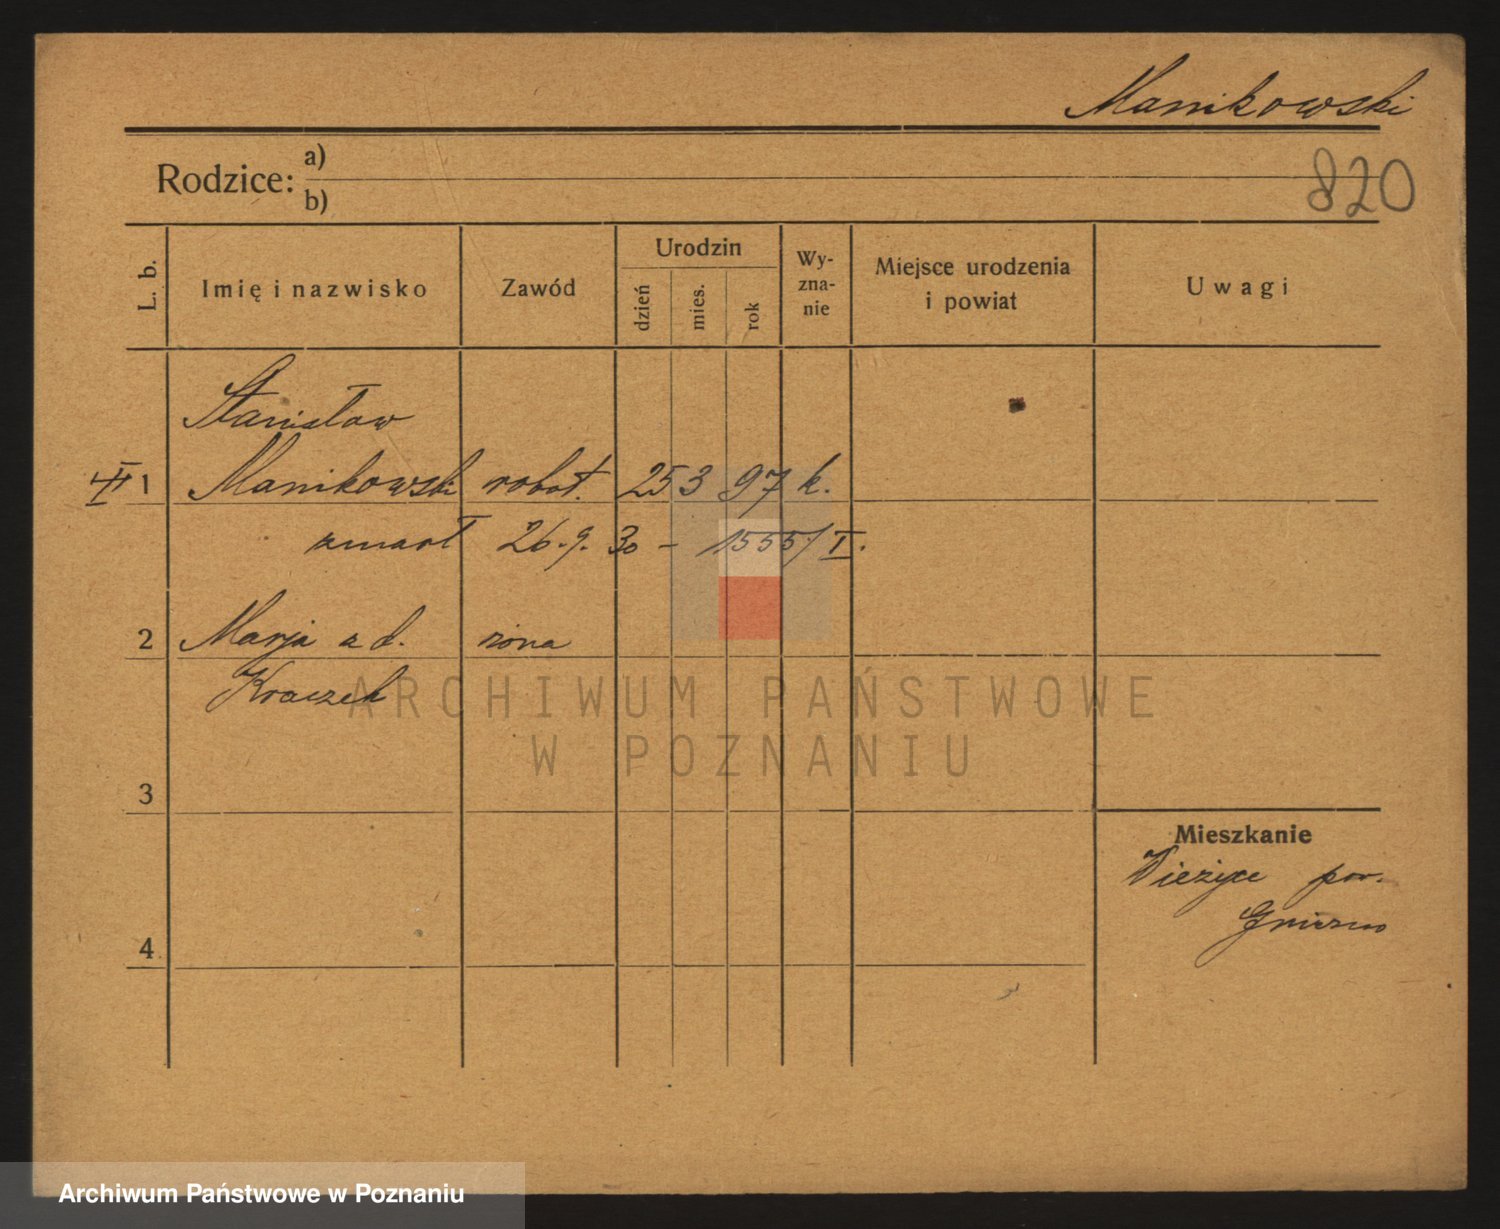 Manikowski
820
Rodzice: a)
b)
L. b.
Imię i nazwisko
Zawód
Urodzin
dzień
mies.
rok
Wy-
zna-
nie
Miejsce urodzenia
i powiat
Uwagi
Stanisław
1 Manikowski robot. 25 3 97 k.
zmarł 26.9.30 - 1555/I.
2 Marja z d. żona
Kraczek
ARCHIWUM PAŃSTWOWE
W POZNANIU
3
Mieszkanie
pow.
Gniezno
4
Archiwum Państwowe w Poznaniu